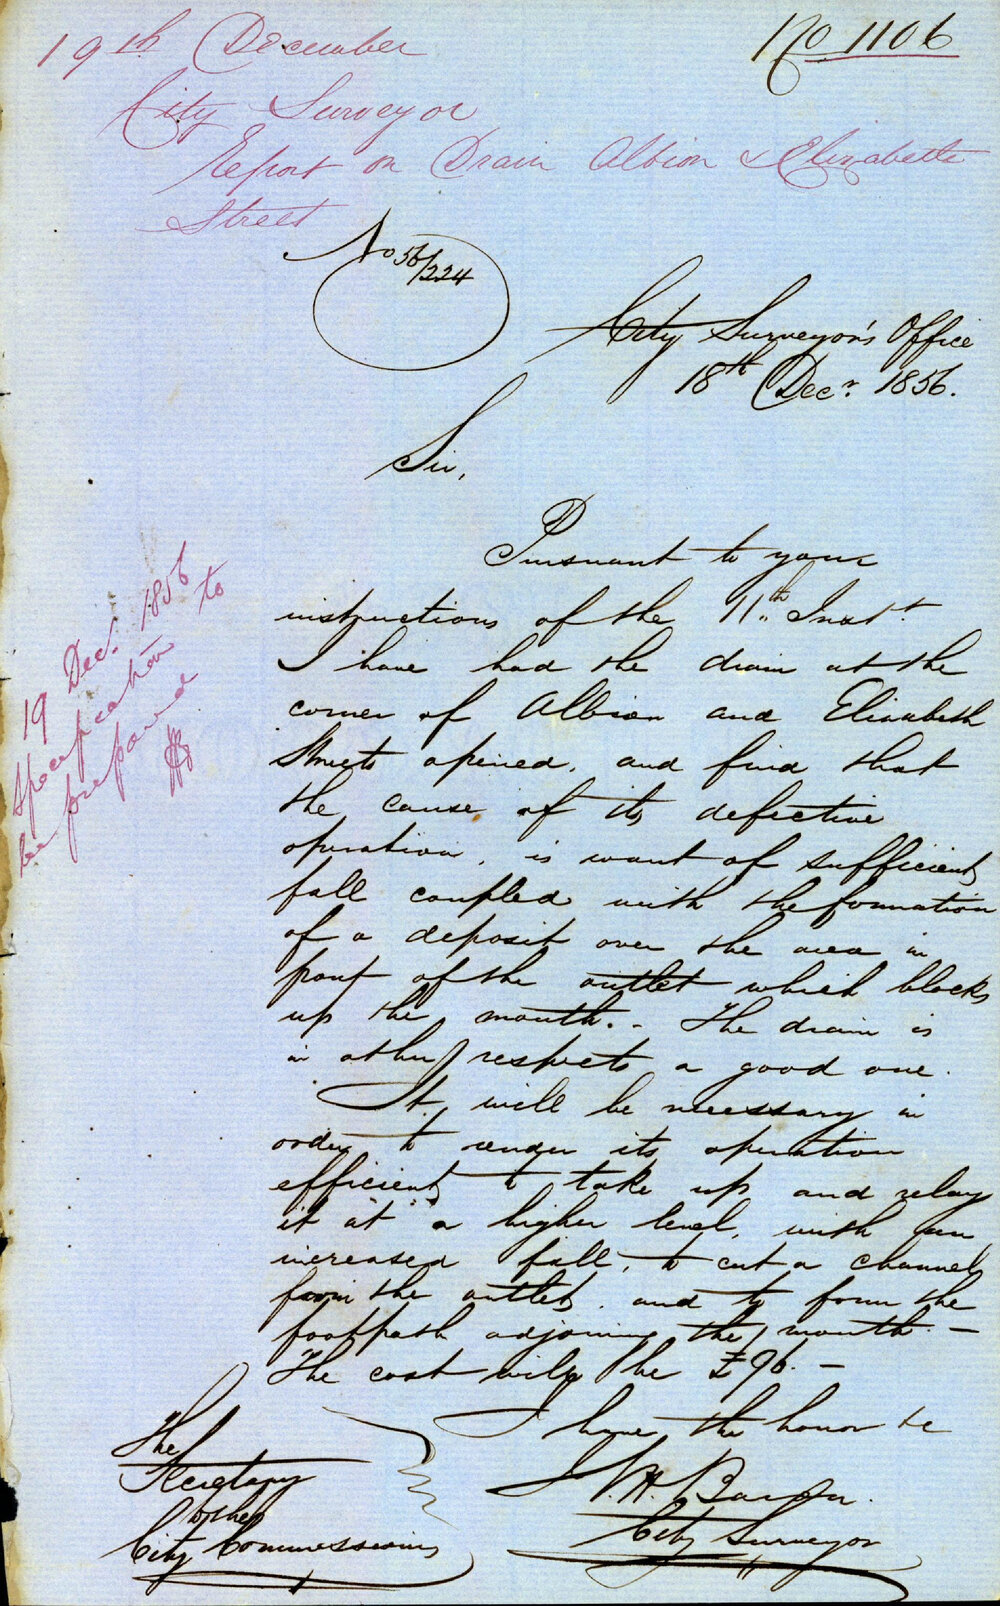 No 1106
19th December
City Surveyor
Report on Drain Albion & Elizabeth
Street
No 56/224
City Surveyor's Office
18th Decr. 1856.
Sir,
Pursuant to your
instructions of the 11th Inst.
I have had the drain at the
corner of Albion and Elizabeth
Streets opened, and find that
the cause of its defective
operation, is want of sufficient
fall coupled with the formation
of a deposit over the area in
front of the outlet which blocks
up the mouth. - The drain is
in other respects a good one.
It will be necessary in
order to render its operation
efficient to take up and relay
it at a higher level, with an
increased fall, to cut a channel
from the outlet. and to form the
footpath adjoining the mouth. -
The cost will be £96. -
I have the honor be
City Surveyor
The
Secretary
to the
City Commissioners
19 Dec. 1856
Specification to
be prepared